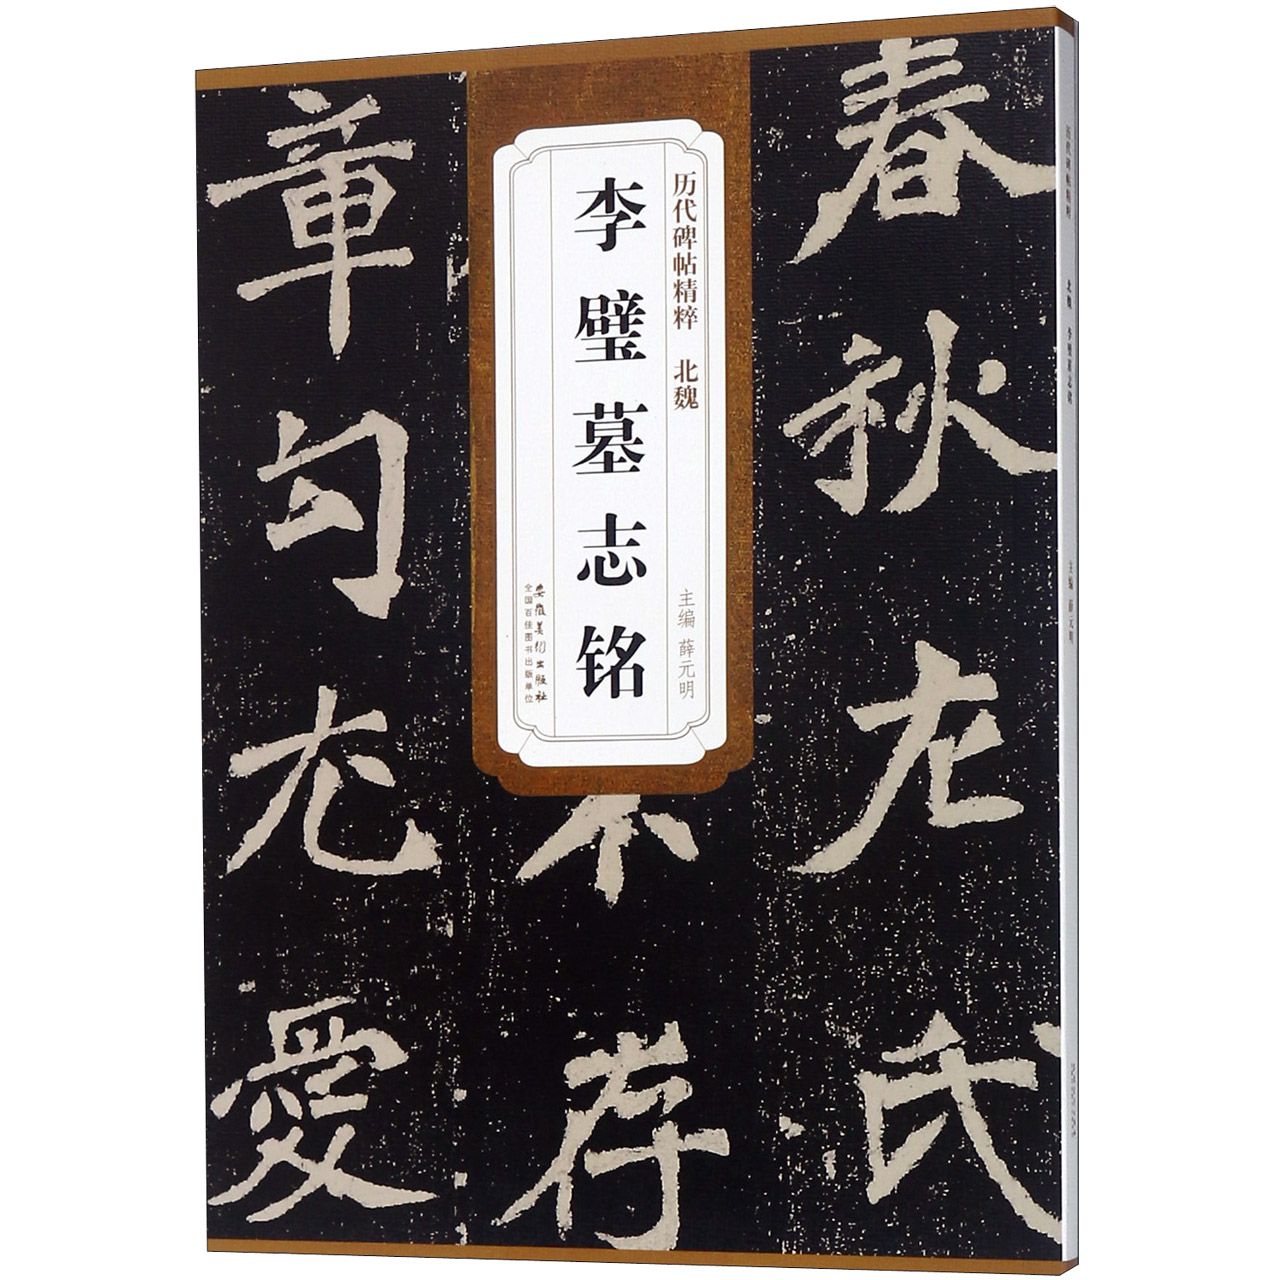 春秋左氏
不存
章句尤愛
历代碑帖精粹 北魏
李璧墓志铭
主编 薛元明
安徽美术出版社
全国百佳图书出版单位
历代碑帖精粹 北魏 李璧墓志铭 主编 薛元明